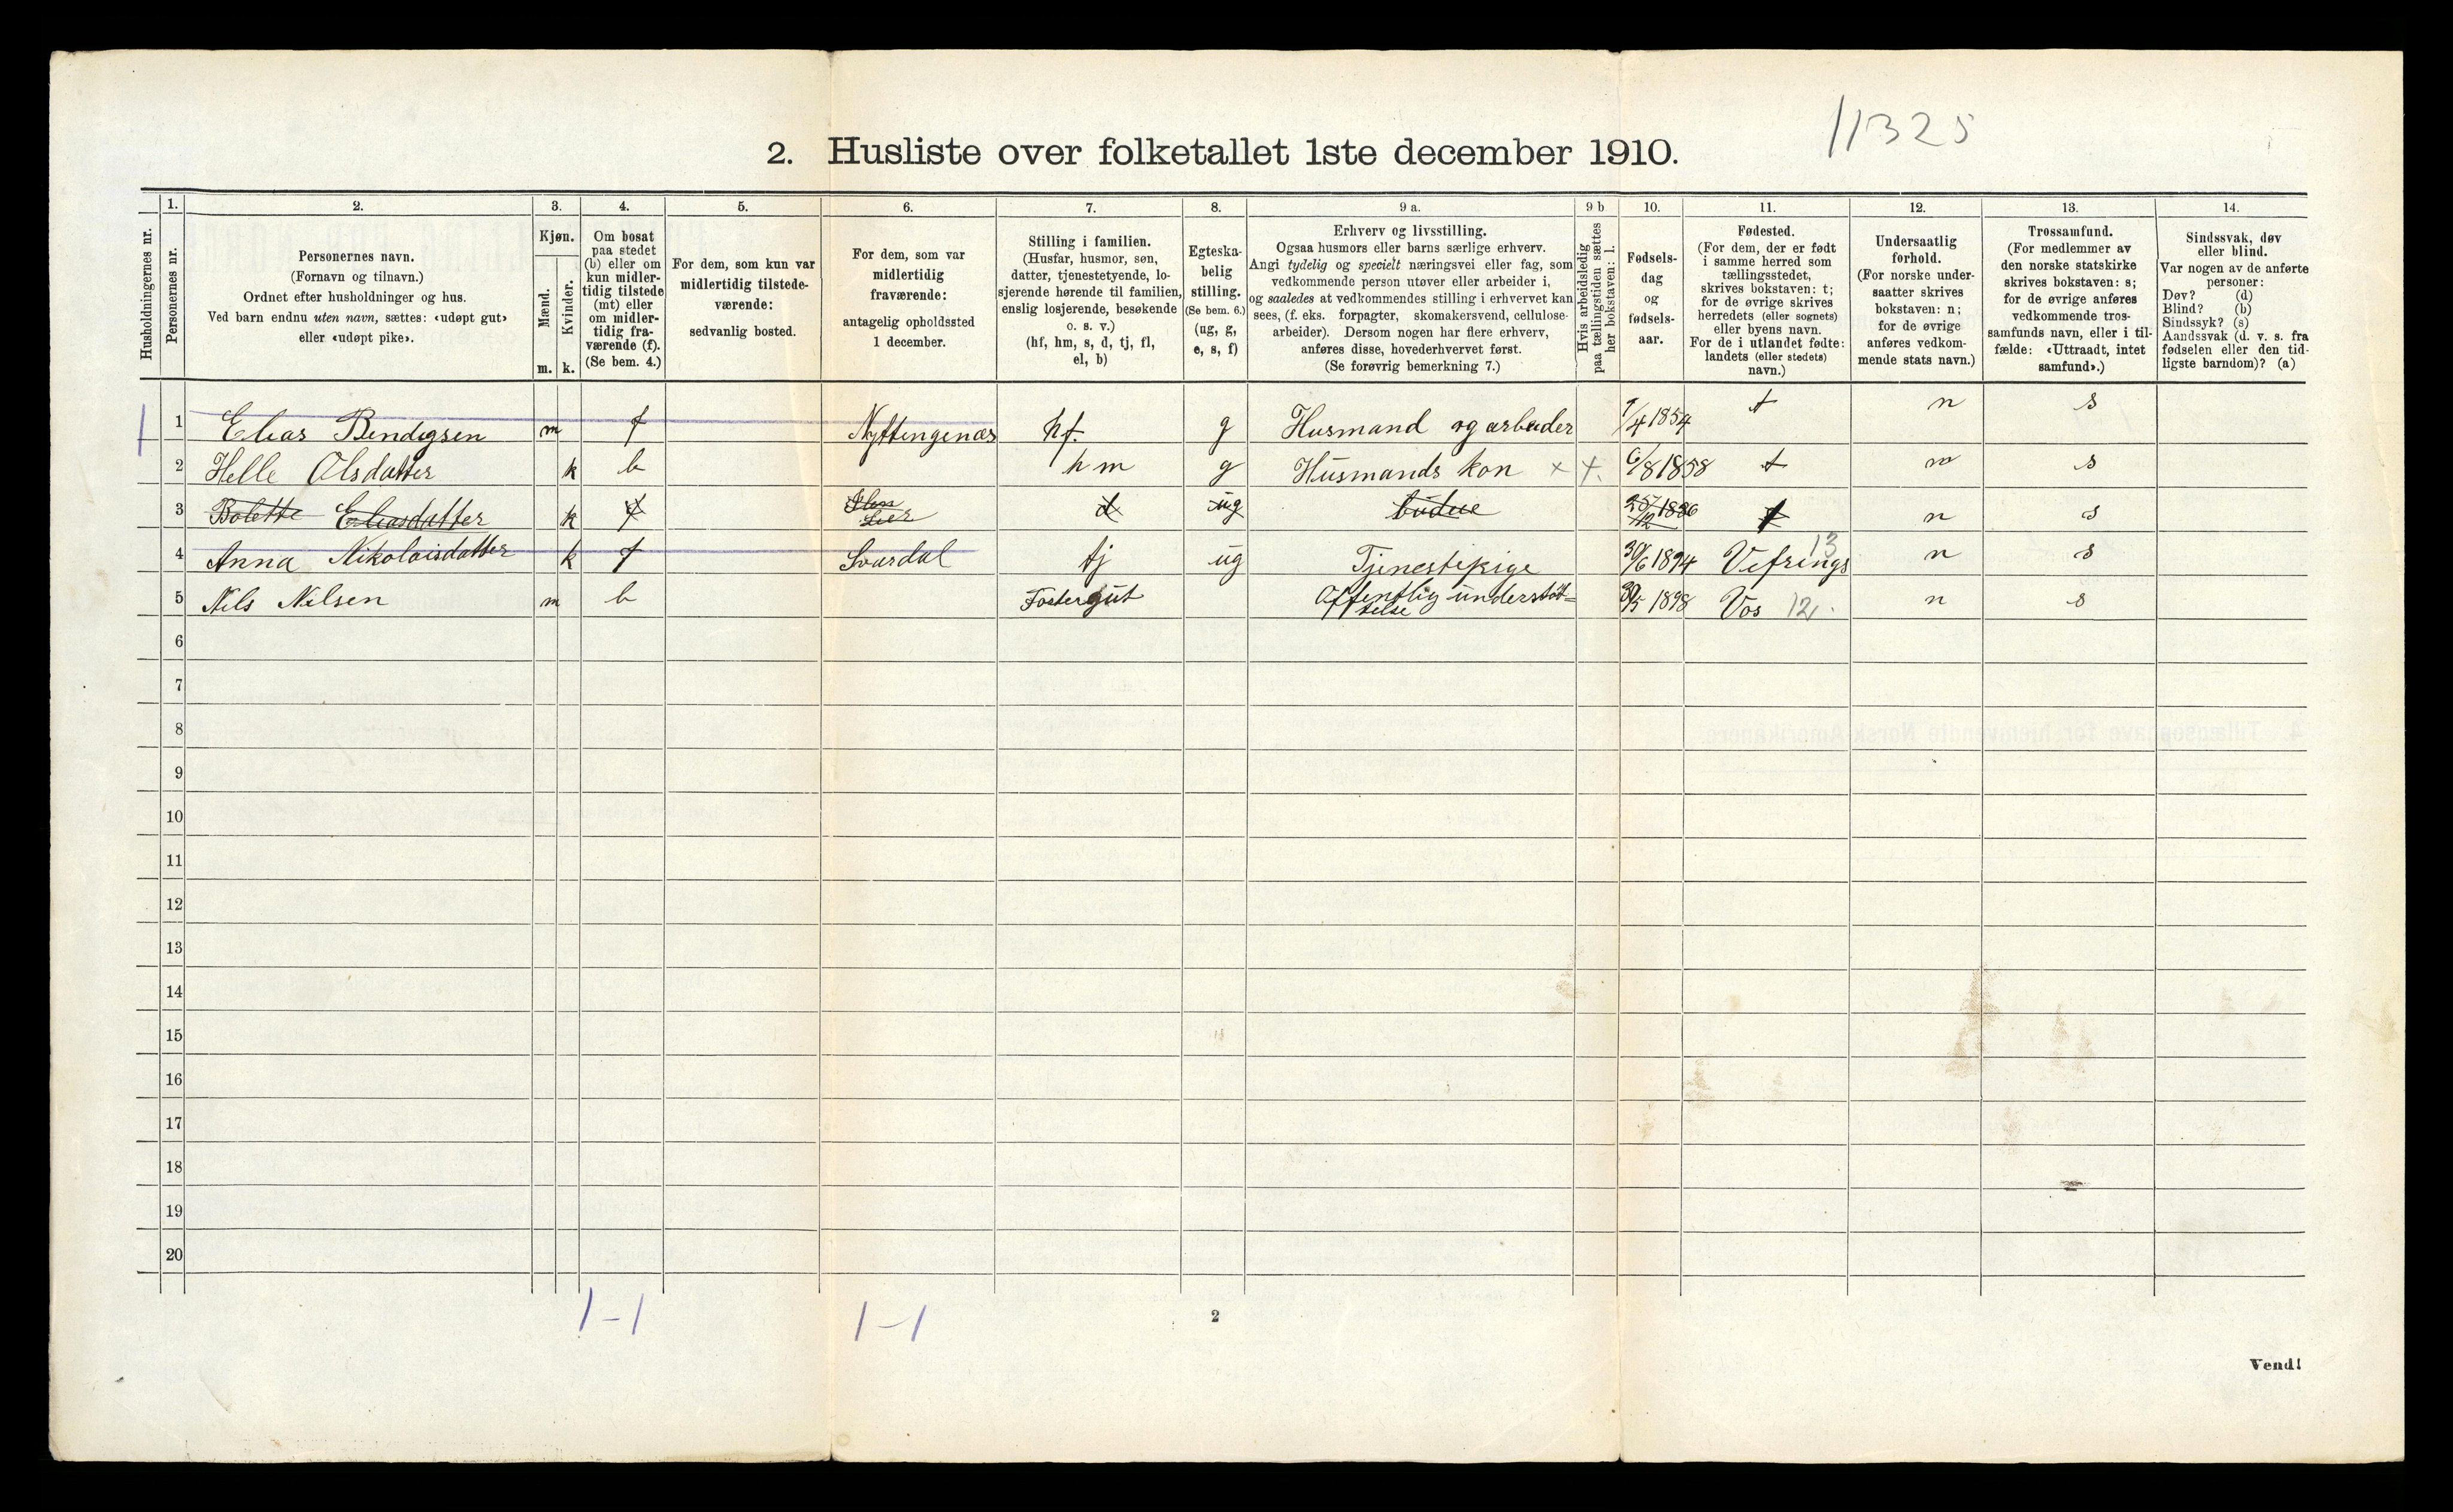 11325
2. Husliste over folketallet 1ste december 1910.
Husholdningernes nr.
1.
Personernes nr.
2.
Personernes navn.
(Fornavn og tilnavn.)
Ordnet efter husholdninger og hus.
Ved barn endnu uten navn, sættes: «udøpt gut»
eller «udøpt pike».
3.
Kjøn.
Mænd.
Kvinder.
m. k.
4.
Om bosat
paa stedet
(b) eller om
kun midler-
tidig tilstede
(mt) eller
om midler-
tidig fra-
værende (f).
(Se bem. 4.)
5.
For dem, som kun var
midlertidig tilstede-
værende:
sedvanlig bosted.
6.
For dem, som var
midlertidig
fraværende:
antagelig opholdssted
1 december.
7.
Stilling i familien.
(Husfar, husmor, søn,
datter, tjenestetyende, lo-
sjerende hørende til familien,
enslig losjerende, besøkende
o. s. v.)
(hf, hm, s, d, tj, fl,
el, b)
8.
Egteska-
belig
stilling.
(Se bem. 6.)
(ug, g,
e, s, f)
9 a.
Erhverv og livsstilling.
Ogsaa husmors eller barns særlige erhverv.
Angi tydelig og specielt næringsvei eller fag, som
vedkommende person utøver eller arbeider i,
og saaledes at vedkommendes stilling i erhvervet kan
sees, (f. eks. forpagter, skomakersvend, cellulose-
arbeider). Dersom nogen har flere erhverv,
anføres disse, hovederhvervet først.
(Se forøvrig bemerkning 7.)
9 b
Hvis arbeidsledig
paa tællingstiden sættes
her bokstaven: l.
10.
Fødsels-
dag
og
fødsels-
aar.
11.
Fødested.
(For dem, der er født
i samme herred som
tællingsstedet,
skrives bokstaven: t;
for de øvrige skrives
herredets (eller sognets)
eller byens navn.
For de i utlandet fødte:
landets (eller stedets)
navn.)
12.
Undersaatlig
forhold.
(For norske under-
saatter skrives
bokstaven: n;
for de øvrige
anføres vedkom-
mende stats navn.)
13.
Trossamfund.
(For medlemmer av
den norske statskirke
skrives bokstaven: s;
for de øvrige anføres
vedkommende tros-
samfunds navn, eller i til-
fælde: «Uttraadt, intet
samfund».)
14.
Sindssvak, døv
eller blind.
Var nogen av de anførte
personer:
Døv? (d)
Blind? (b)
Sindssyk? (s)
Aandssvak (d. v. s. fra
fødselen eller den tid-
ligste barndom)? (a)
1 Elias Bendigsen m f hf. g Husmand og arbeider /4 1854 t n s
2 Helle Olsdatter k b hm g Husmands kon × × 6/8 1858 t n s
3 Bolette Eliasdatter k f d ug budeie 25/12 1886 t n s
4 Anna Nikolaisdatter k f Svardal tj ug Tjenestepige 30/6 1894 Vefrings 13 n s
5 Nils Nilsen m b Fostergut Offentlig understøt-
telse 30/5 1898 Vos 12. n s
6
7
8
9
10
11
12
13
14
15
16
17
18
19
20
1-1
1-1
2
Vend!